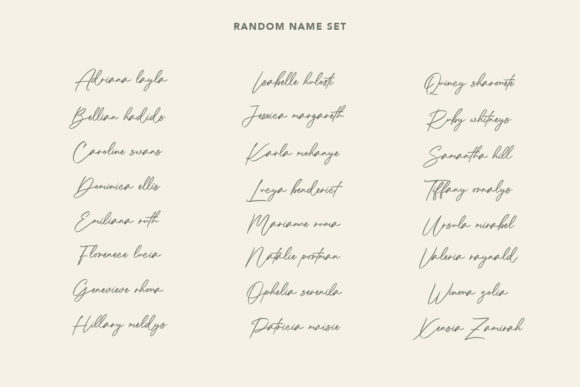 RANDOM NAME SET
Adriana layla
Bellian hadids
Caroline swans
Dominica ellis
Emiliana ruth
Florenece lucia
Genevieve rhona
Hillary meldys
Isabelle hulost
Jessica margareth
Karla mohanye
Lucya benderict
Marianne ruma
Natalie portman
Ophelia serenila
Patricia maisie
Quincy sharonete
Ruby whitneys
Samantha hill
Tiffany ornalys
Ursula mirabel
Valeria raynald
Winona zolia
Xensia Zamirah